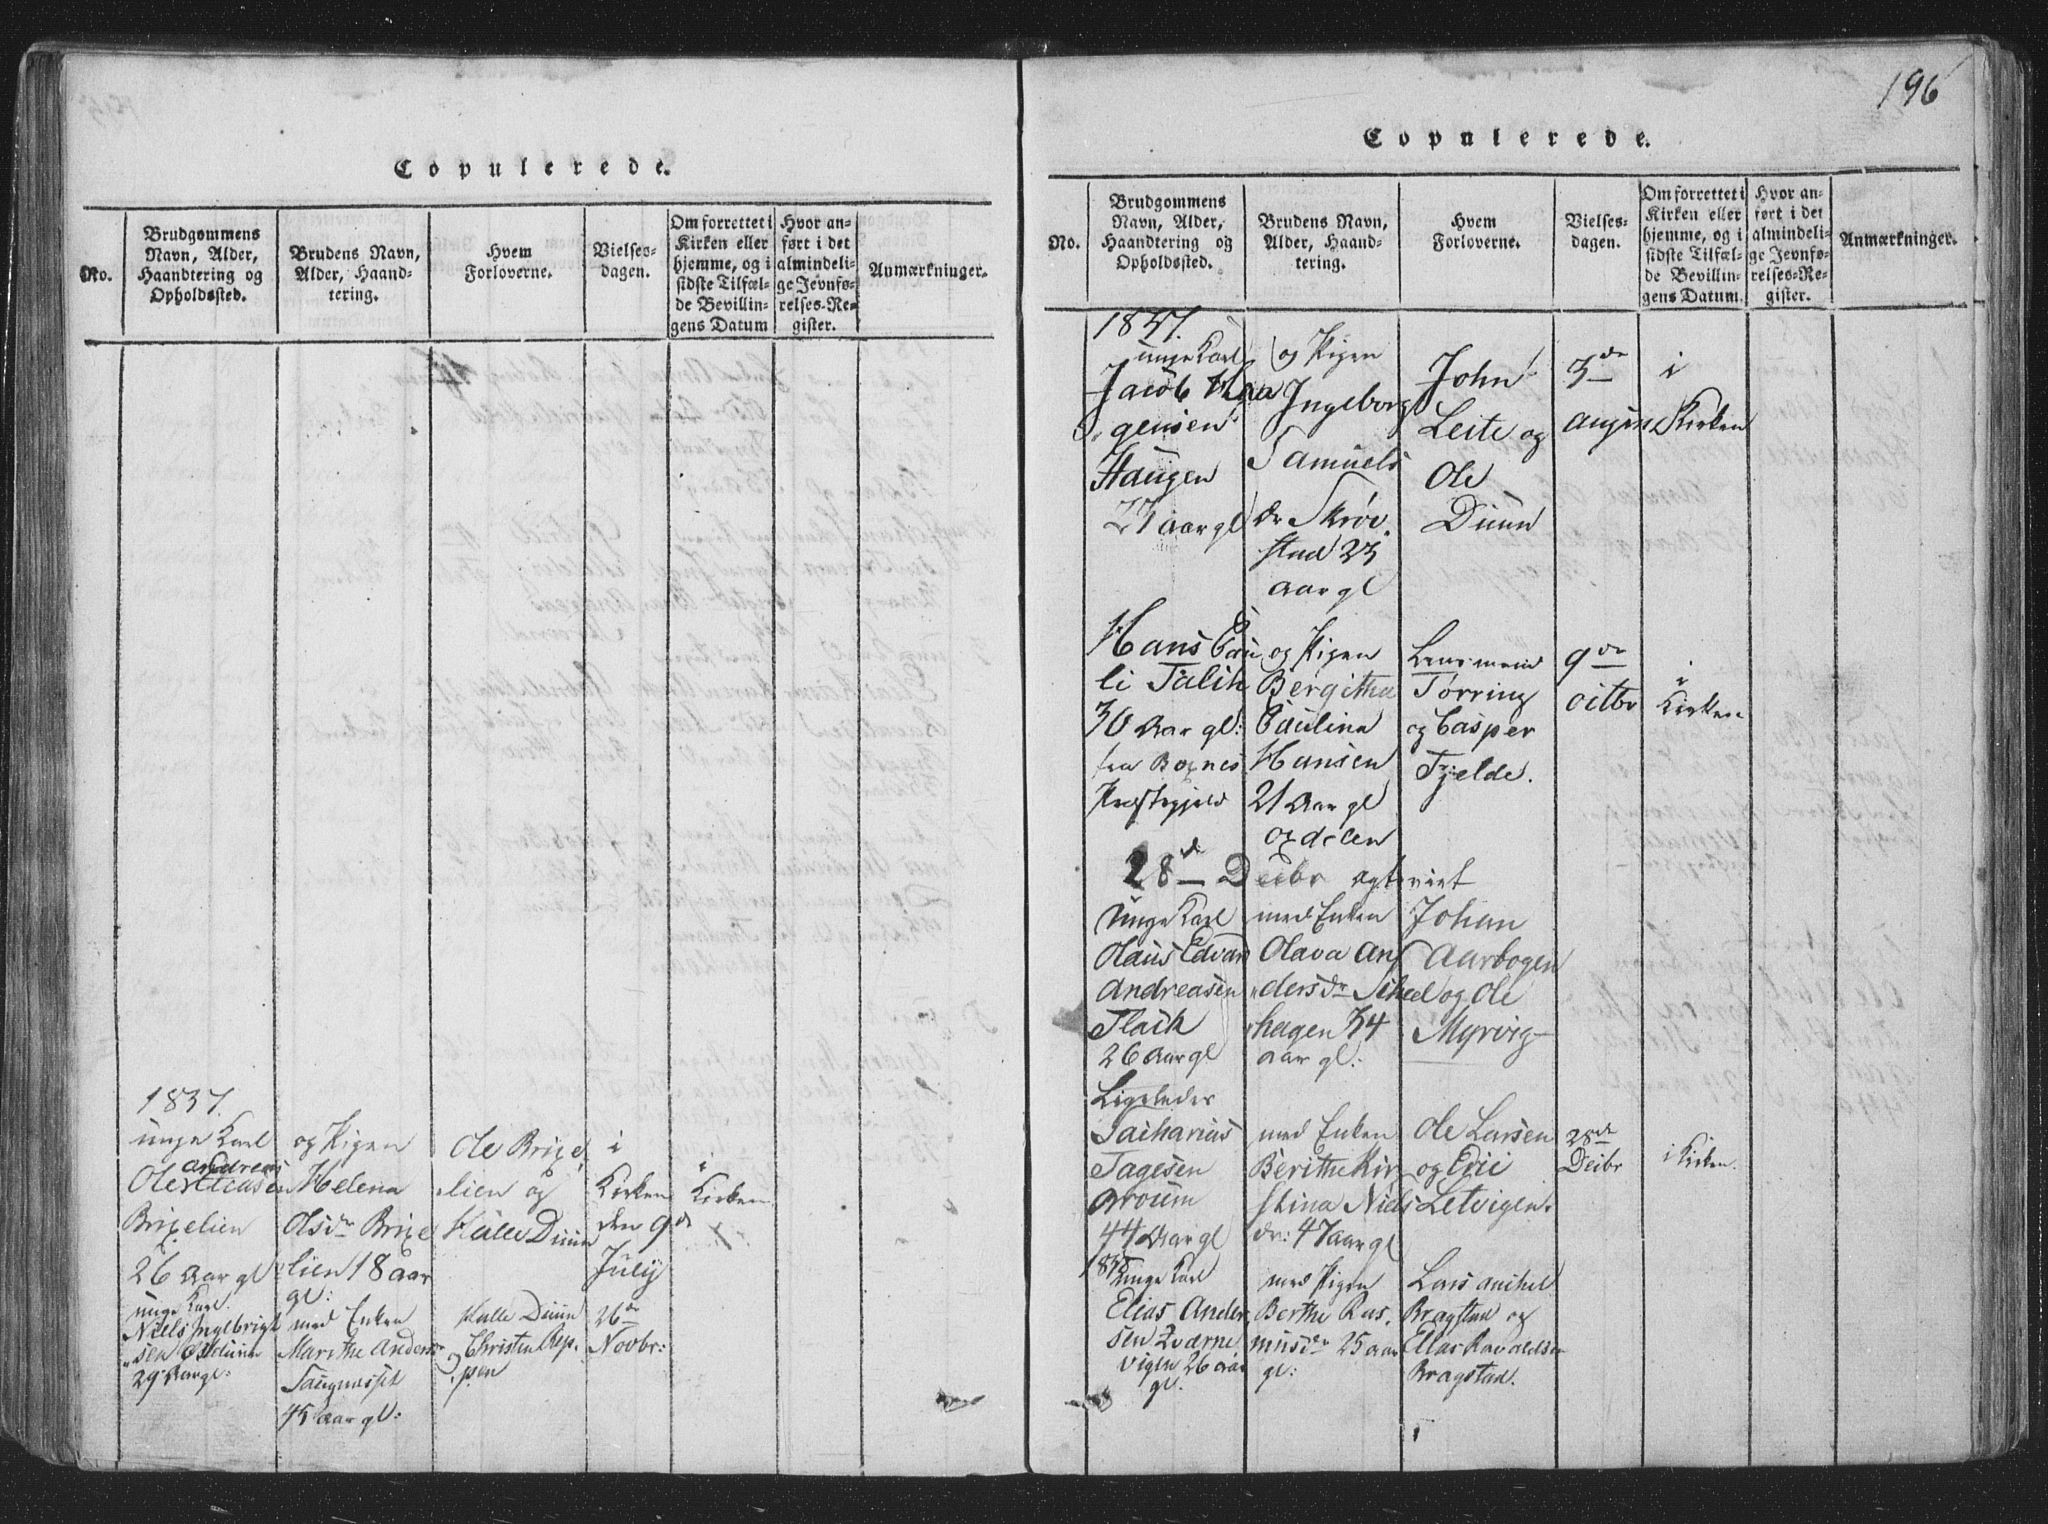 Copulerede.
No.
Brudgommens
Navn, Alder,
Haandtering og
Opholdssted.
Brudens Navn,
Alder, Haand-
tering.
Hvem
Forloverne.
Vielses-
dagen.
Om forrettet i
Kirken eller
hjemme, og i
sidste Tilfæl-
de Bevillin-
gens Datum
Hvor an-
ført i det
almindeli-
ge Jevnfø-
relses-Re-
gister.
Anmærkninger.
1837.
unge Karl
andreas
Ole
Brixelien
26 Aar gl
og Pigen
Helena
Olsdr Brixe
lien 18 aar
gl:
Ole Brixe
lien og
Kalle Duun
i
Kirken
den 9de
July
i
Kirken
unge Karl
Niels Ingebrigt
sen
29 Aar gl:
med Enken
Marithe Anders
45 aar gl:
Kalle Duun
og Christen Rep
pen
26de
Novbr:
196
Copulerede.
No.
Brudgommens
Navn, Alder,
Haandtering og
Opholdssted.
Brudens Navn,
Alder, Haand-
tering.
Hvem
Forloverne.
Vielses-
dagen.
Om forrettet i
Kirken eller
hjemme, og i
sidste Tilfæl-
de Bevillin-
gens Datum.
Hvor an-
ført i det
almindeli-
ge Jevnfø-
relses-Re-
gister.
Anmærkninger.
1837.
unge Karl
Jacob Haa
gensen
Haugen
27 aar gl
og Pigen
Ingeborg
Samuels
dr Skrøv
stad 23
aar gl
John
Leite og
Ole
Duun
3de
i
Kirken
Hans Pau
li Falch
30 Aar gl:
fra
Præstegjeld
og Pigen
Bergitha
Paulina
Hansen
21 Aar gl
Lensmand
Tørring
og Casper
Fjelde.
9de
octbr
i
Kirken
og delen
28de Decbr egteviet
Unge Karl
Olaus Edvar
Andreasen
Flach
26 Aar gl
med Enken
Olava An
dersdr Scheel
hagen 34
aar gl:
Johan
Aarbogen
og Ole
Myrvig
Ligeledes
Zacharias
Tagesen
44 Aar gl
med Enken
Berithe Kir
stina Niels
dr: 47 aar gl
Ole Larsen
og Eric
Letvigen.
28de
Decbr
i Kirken.
1838
Unge Karl
Elias Ander
sen Qværne
vigen 26 aar
gl.
med Pigen
Berthe Ras
musdr 25 aar
gl:
Lars
Bragstad og
Elias
Bragstad.